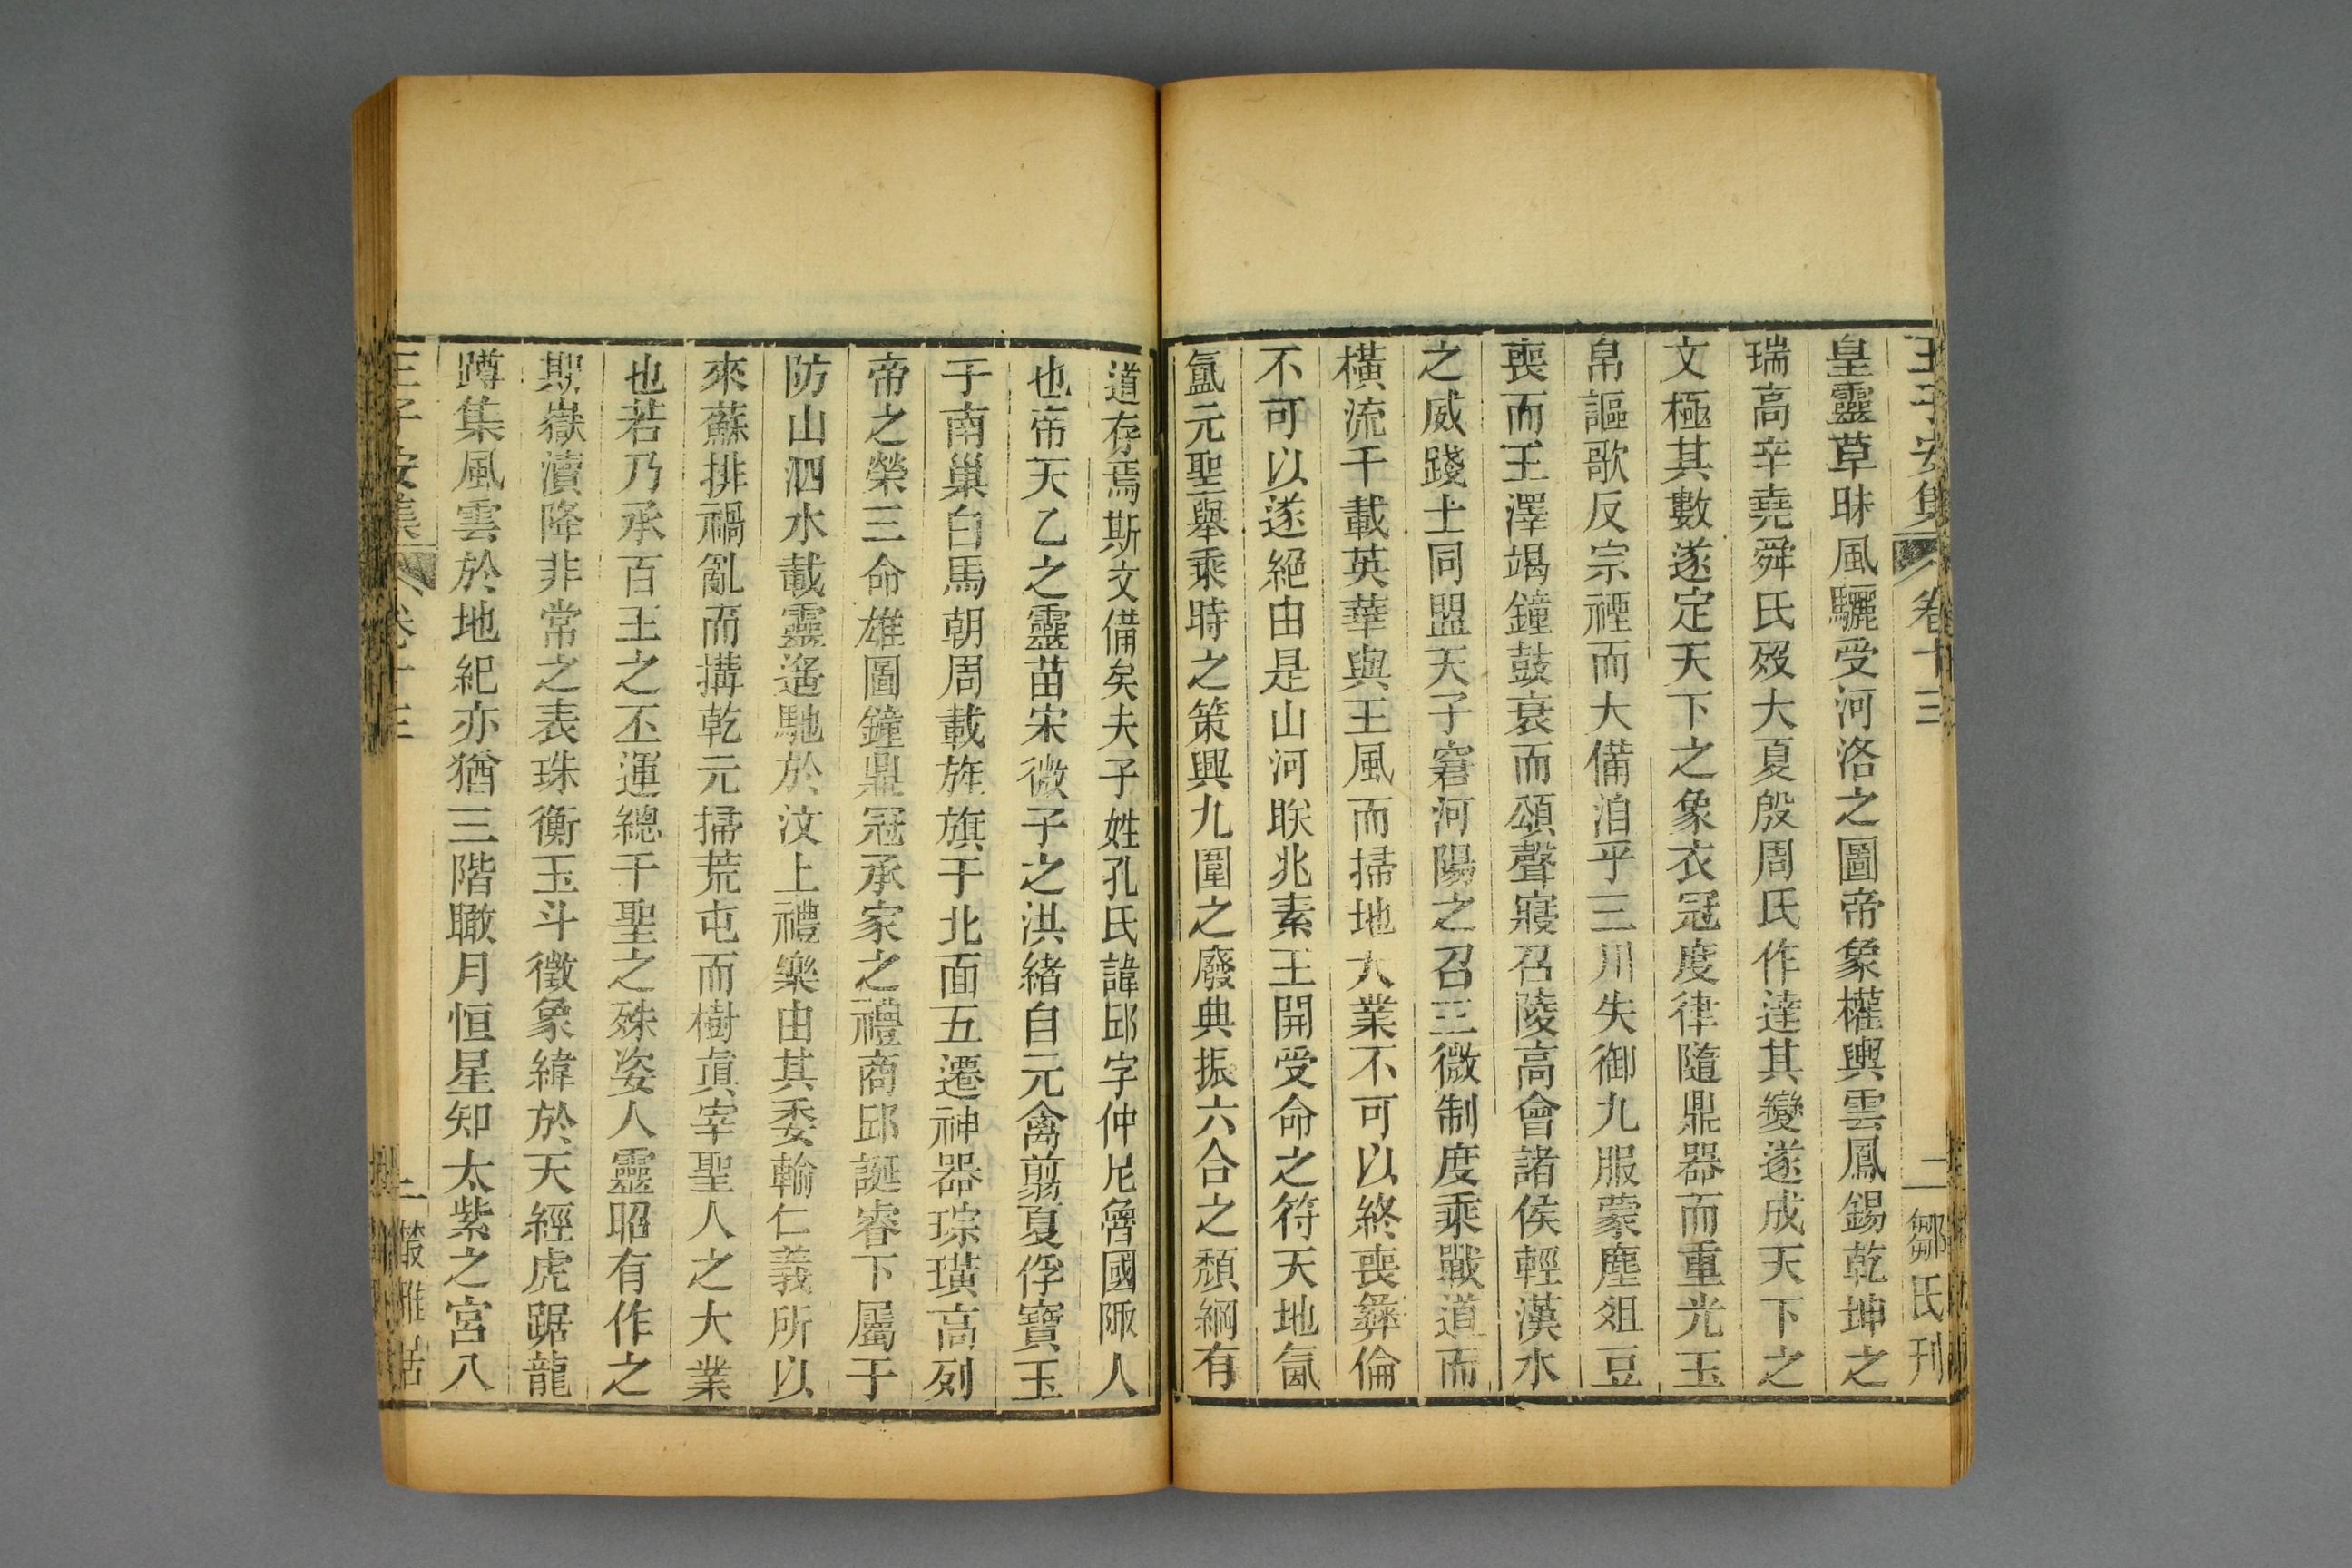 王子安集 卷十三 二 鄒氏刊
皇靈草昧風驪受河洛之圖帝象權輿雲鳳錫乾坤之
瑞高辛堯舜氏歿大夏殷周氏作達其變遂成天下之
文極其數遂定天下之象衣冠度律隨鼎器而重光玉
帛謳歌反宗禋而大備洎乎三川失御九服蒙塵俎豆
喪而王澤竭鐘鼓衰而頌聲寢召陵高會諸侯輕漢水
之威踐土同盟天子窘河陽之召三微制度乘戰道而
橫流千載英華與王風而掃地大業不可以終喪彝倫
不可以遂絕由是山河联兆素王開受命之符天地氤
氳元聖舉乘時之策興九圍之廢典振六合之頹綱有
道存焉斯文備矣夫子姓孔氏諱邱字仲尼魯國陬人
也帝天乙之靈苗宋微子之洪緒自元禽翦夏俘寶玉
于南巢白馬朝周載旌旗于北面五遷神器琮璜高列
帝之榮三命雄圖鐘鼎冠承家之禮商邱誕睿下屬于
防山泗水載靈遙馳於汶上禮樂由其委輸仁義所以
來蘇排禍亂而搆乾元掃荒屯而樹真宰聖人之大業
也若乃承百王之丕運總千聖之殊姿人靈昭有作之
期嶽瀆降非常之表珠衡玉斗徵象緯於天經虎踞龍
蹲集風雲於地紀亦猶三階瞰月恒星知太紫之宮八
王子安集 卷十三